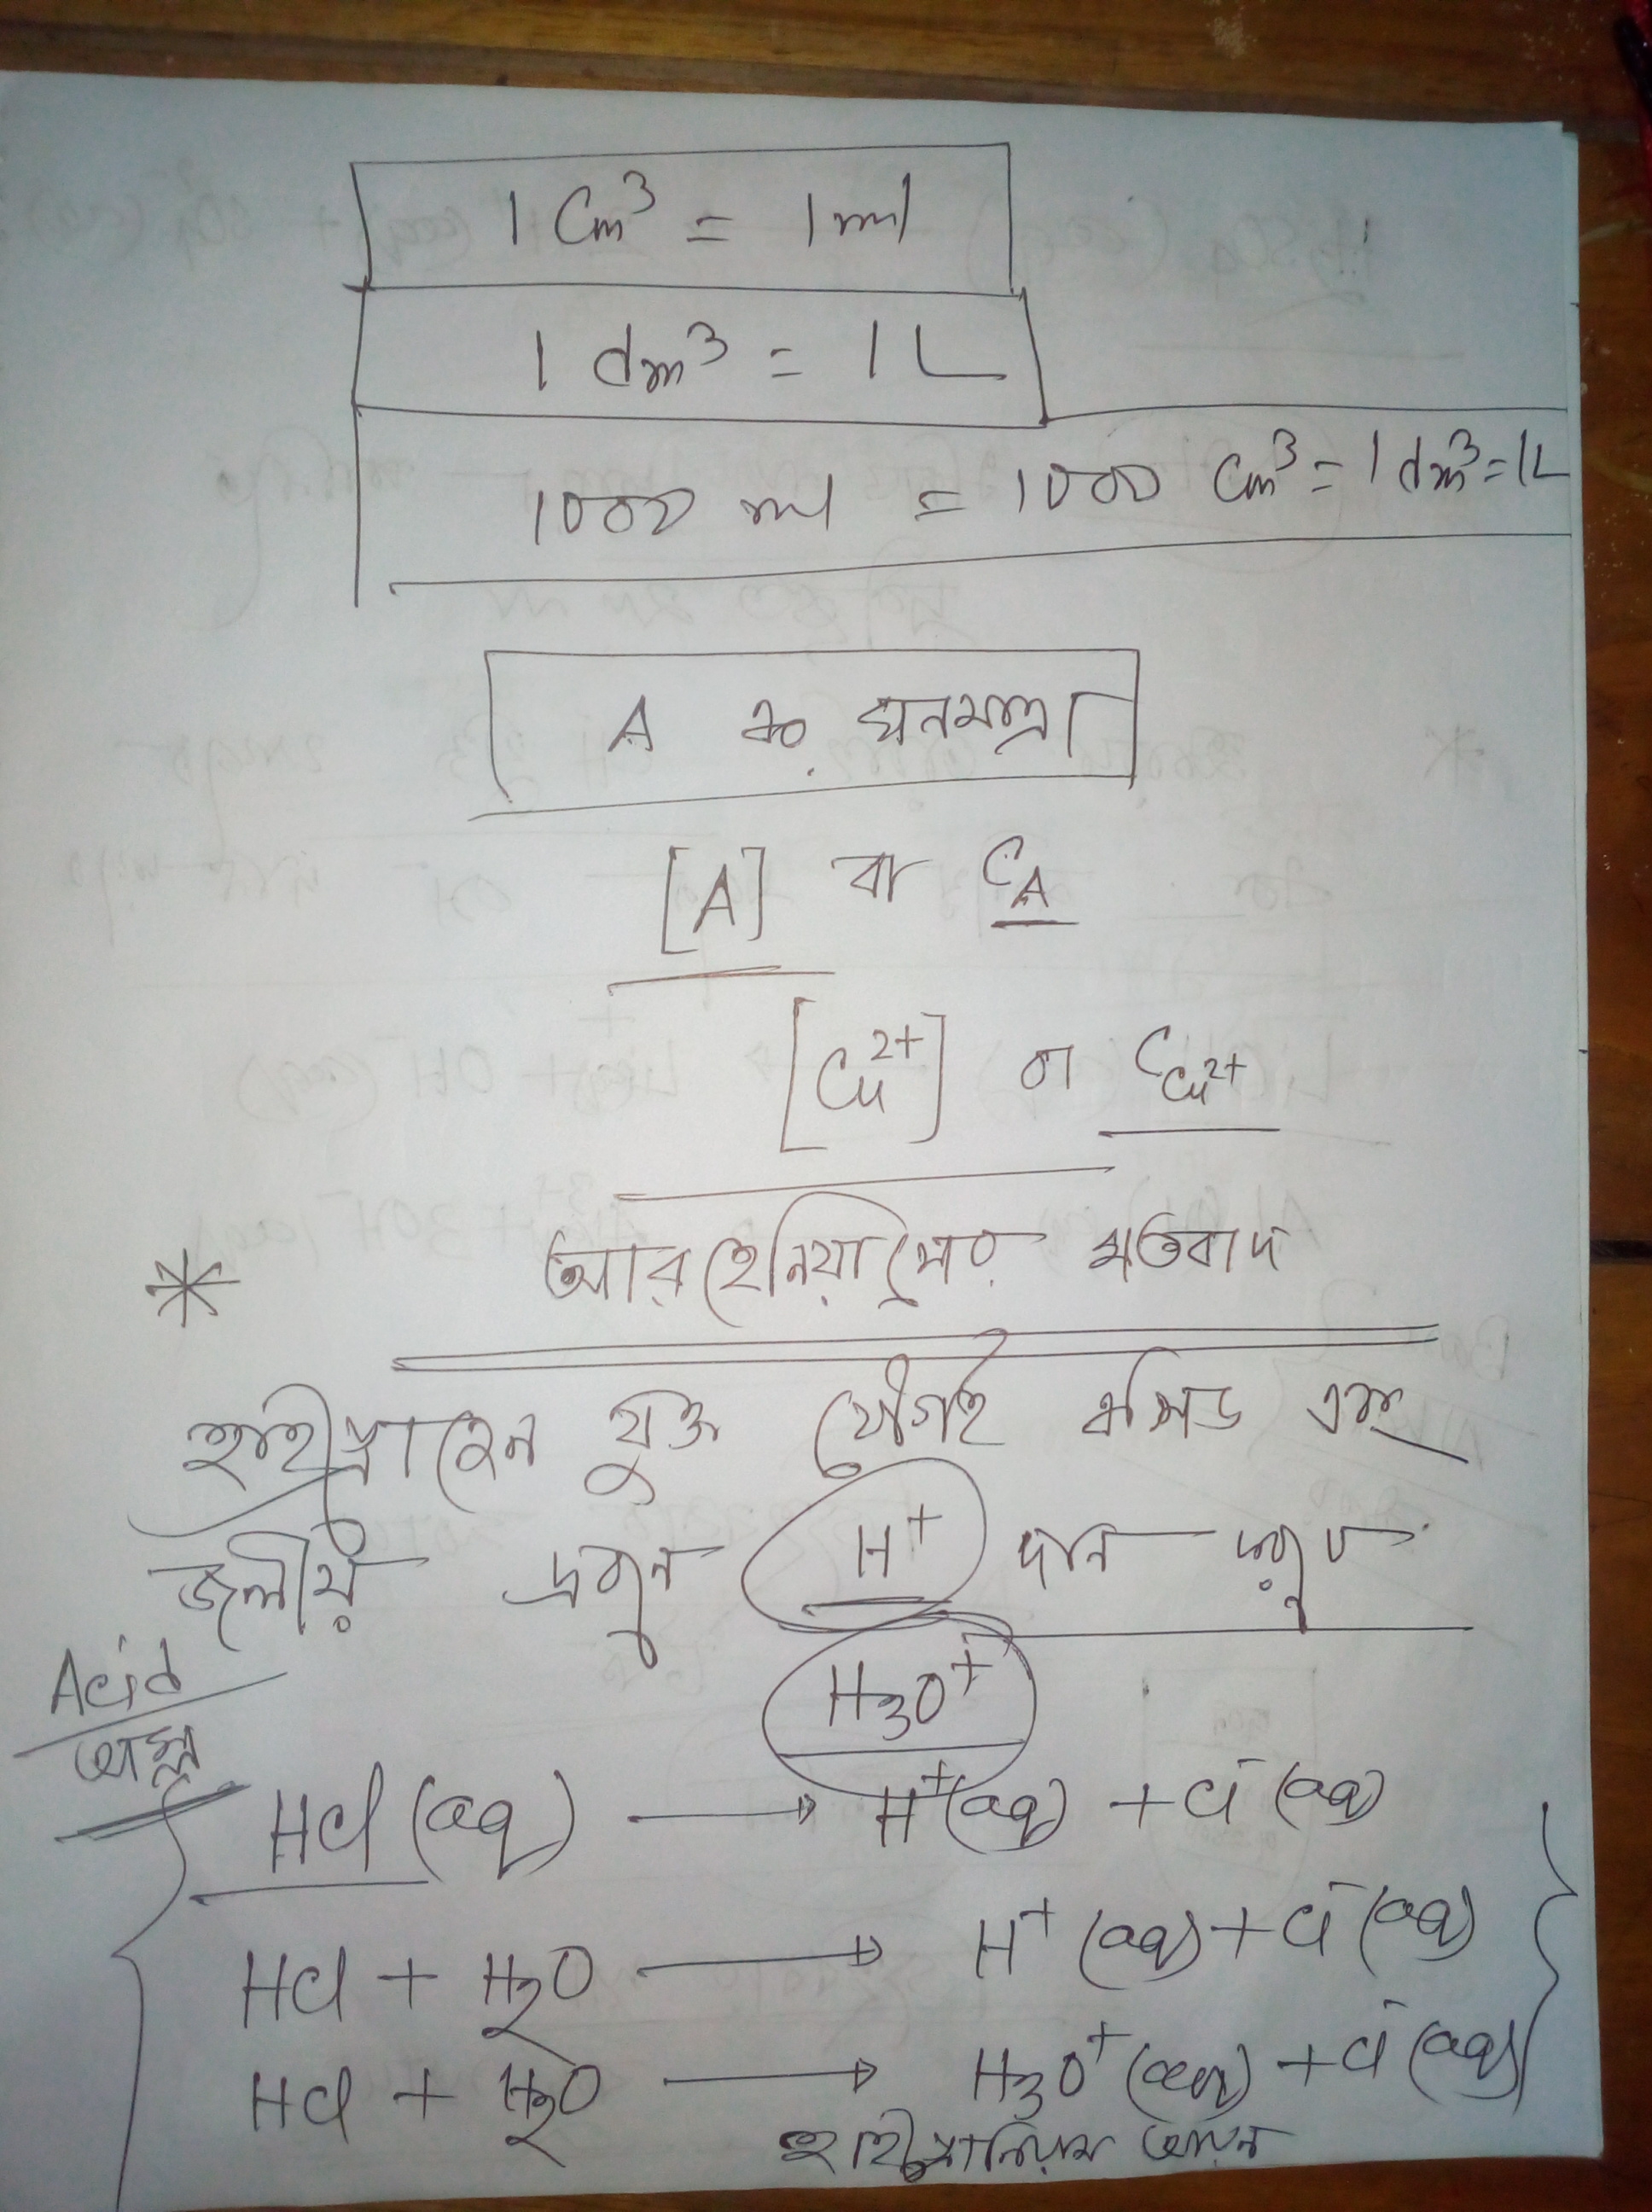 1 Cm³ = 1 ml
1 dm³ = 1 L
1000 ml = 1000 Cm³ = 1 dm³ = 1L
A এর ঘনমাত্রা
[A] বা C_A
[Cu²⁺] বা C_Cu²⁺
* আরহেনিয়াসের মতবাদ
হাইড্রোজেন যুক্ত যৌগই এসিড এরা
জলীয় দ্রবণে H⁺ দান করে
H₃O⁺
Acid
অম্ল
HCl (aq) → H⁺(aq) + Cl⁻ (aq)
HCl + H₂O → H⁺ (aq) + Cl⁻ (aq)
HCl + H₂O → H₃O⁺ (aq) + Cl⁻ (aq)
হাইড্রোনিয়াম আয়ন